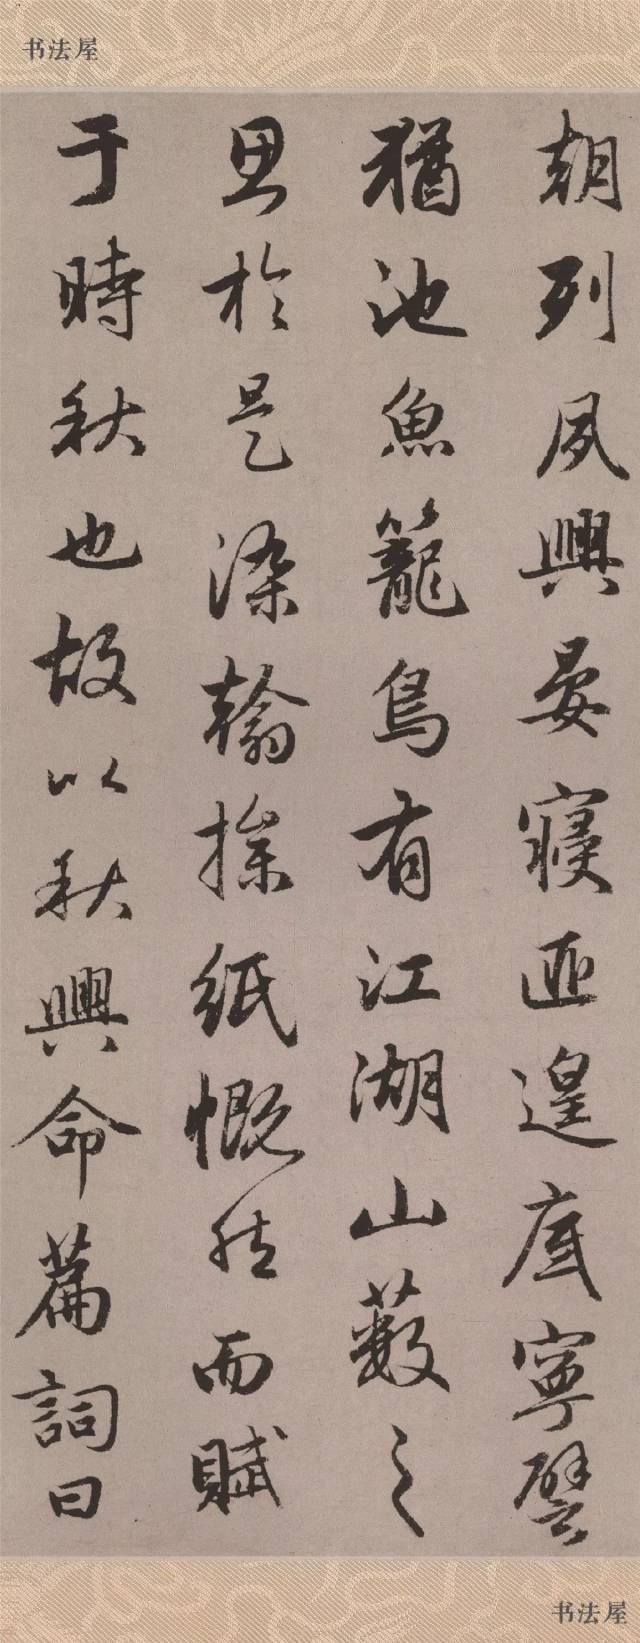 书法屋
朝列夙興晏寢匪遑底寧譬
猶池魚籠鳥有江湖山藪之
思於是染翰操紙慨然而賦
于時秋也故以秋興命篇詞曰
书法屋